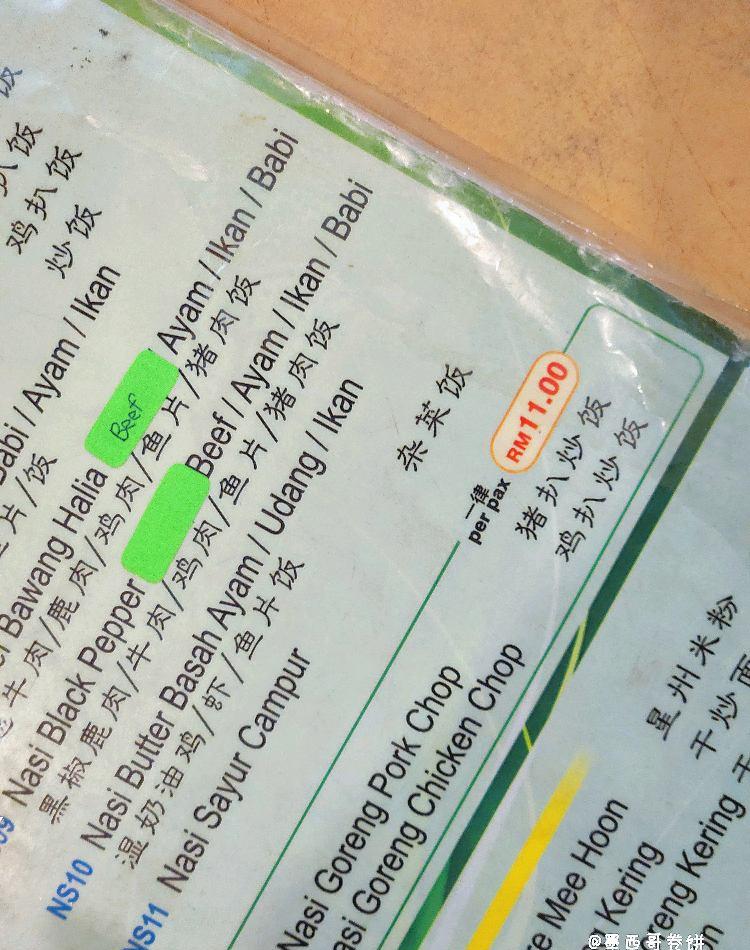 饭
扒饭
鸡扒饭
炒饭
Babi / Ayam / Ikan
片/饭
Bawang Halia Beef Ayam / Ikan / Babi
牛肉/鹿肉/鸡肉/鱼片/猪肉饭
Nasi Black Pepper Beef / Ayam / Ikan / Babi
黑椒鹿肉/牛肉/鸡肉/鱼片/猪肉饭
NS10 Nasi Butter Basah Ayam / Udang / Ikan
湿奶油鸡/虾/鱼片饭
NS11 Nasi Sayur Campur 杂菜饭
一律
per pax
RM11.00
Nasi Goreng Pork Chop 猪扒炒饭
Nasi Goreng Chicken Chop 鸡扒炒饭
Mee Hoon 星州米粉
Kering 干炒面
Goreng Kering 干
@墨西哥卷饼